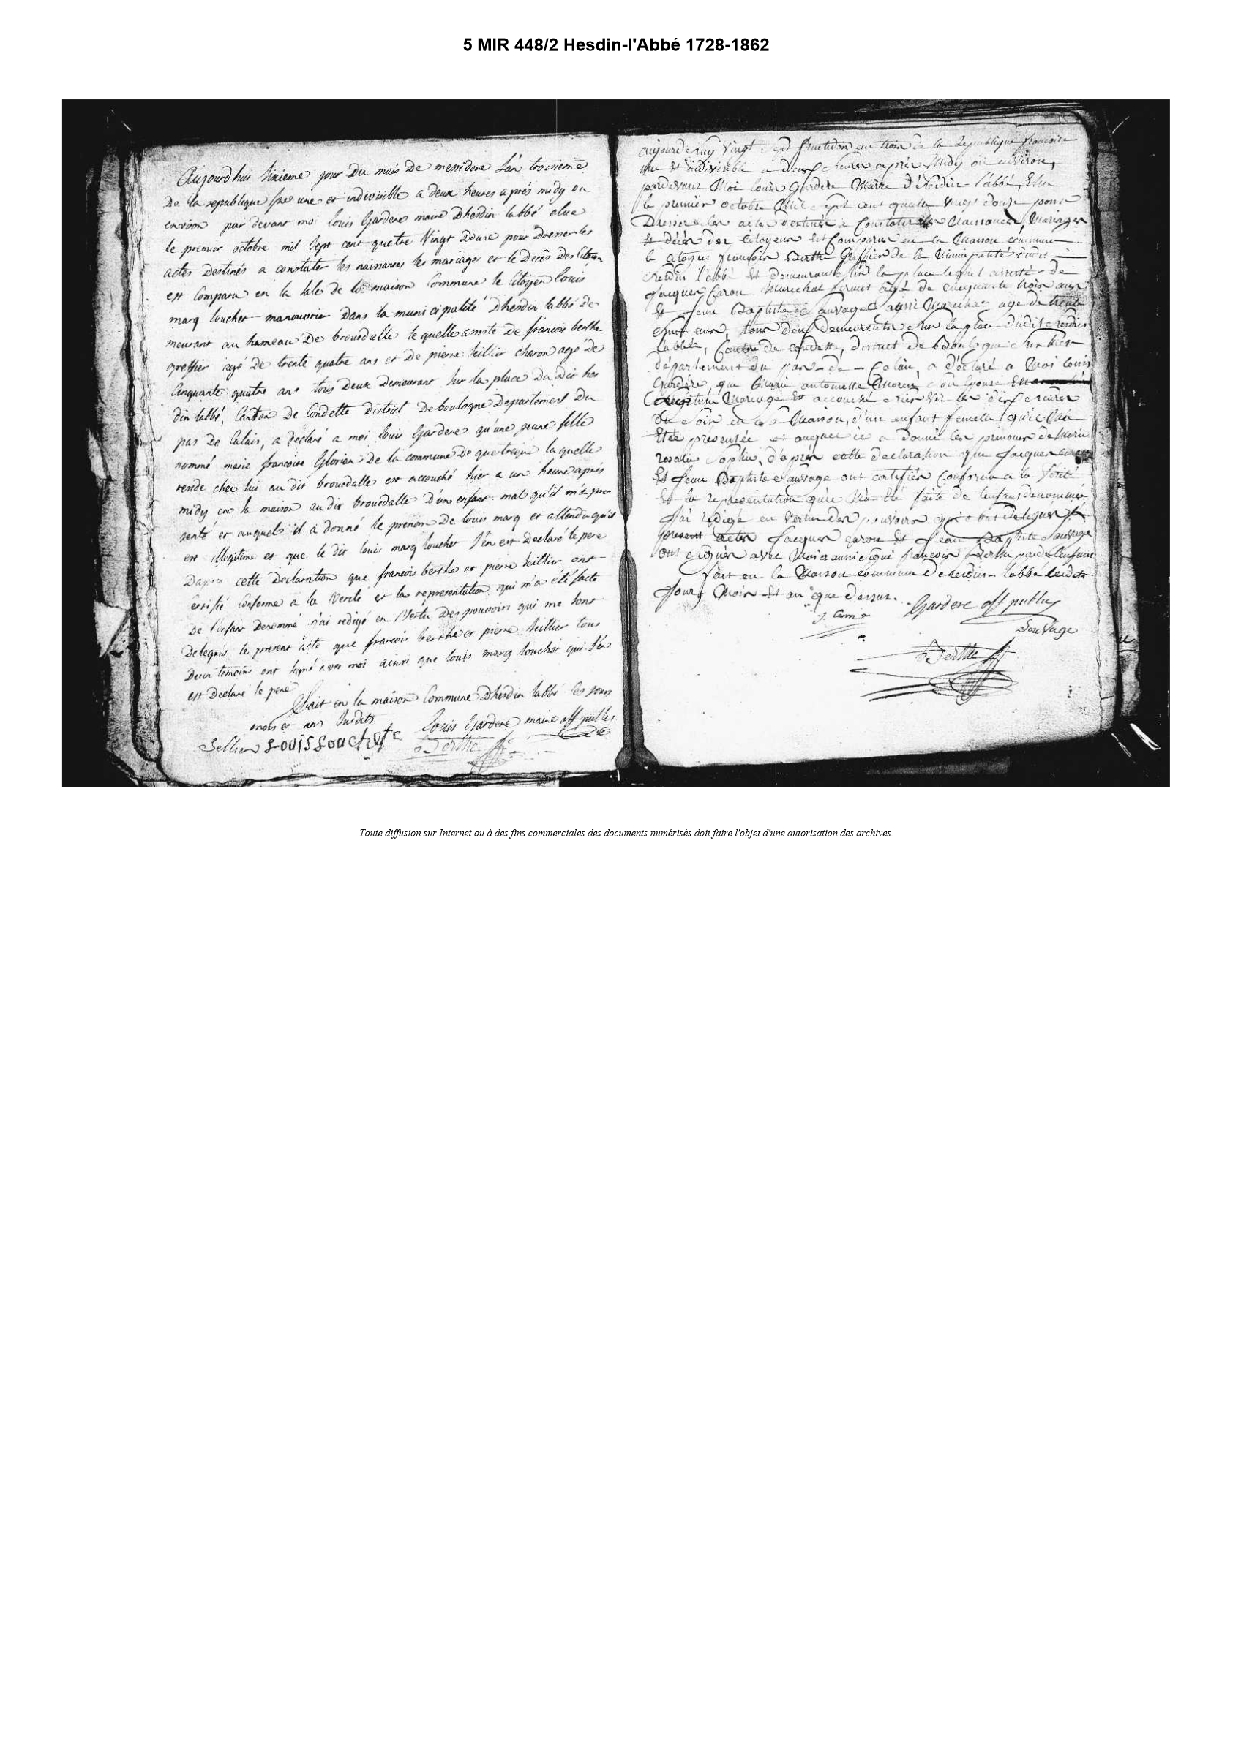 5 MIR 448/2 Hesdin-l'Abbé 1728-1862
Aujourd'hui sixieme jour du mois de messidore l'an troisieme
De la republique fse une et indivisible a deux heures après midy ou
environ par devant moi louis Gardere maire Dhesdin labbé elue
le premier octobre mil sept cent quatre Vingt douze pour dresser les
actes destinés a constater les naissances les mariages et le Decès des Citoÿens
est Comparu en la sale de la maison Commune le Citoÿen louis
marq loucher manouvrier dans la municipalité Dhesdin labbé de-
meurant au hameau De brouedalle lequelle assisté De francois berthe
greffier agé de trente quatre ans et de pierre sellier charon agé de
Cinquante quatre ans tous deux demeurant sur la place Du dit hes
din labbé, Canton de Condette district De boulogne Departement Du
pas De Calais, a déclaré a moi, louis Gardere qu'une jeune fille
nommé marie francoise Glorieu De la commune De laquelle
reside chez lui au dit brouedalle est accouché hier a une heure après
midy en la maison au dit brouedalle D'un enfant mal qu'il m'a pre
senté et auquels il a donné le prenom De louis marq et attendu qu'il
est illegitime et que le dit louis marq loucher s'en est déclaré le pere
D'après cette Declaration que francois berthe et pierre sellier ont
certifié Conforme a la Verité et la representation qui m'a été faite
De l'enfant Denommé j'ai redigé en Vertu Des pouvoirs qui me sont
Delegués le present acte que francois berthe et pierre sellier tous
Deux temoins ont signé avec moi ainsi que louis marq loucher qui s'en
est Déclaré le pere
Fait en la maison Commune Dhesdin labbé les jours
mois et ans susdits
Louis Gardere maire off public
Sellier Louis Berthe
aujourd'huy Vingt fructidor an trois de la Republique francaise
une et indivisible a heures après Midy ou environ,
pardevant Moi louis Gardere Maire D'hesdin l'abbé Elue
le premier octobre Mil sept cent quatre Vingt Douze pour
Dresser les actes destinés a Constater les Naissances, Mariages
et décès des Citoyens est Comparu en la Maison commune
le citoyen francois Berthe Greffier de la Municipalité
hesdin l'abbé Et demeurant sur la place lequel assisté de
Jacques Caron Marechal ferant agé de cinquante trois ans
Et Jean Baptiste Sauvage aussi Marechal agé de trente
ans, tous deux Demeurants sur la place dudit hesdin
l'abbé, Canton de condette, District de Boulogne sur Mer
departement du pas-de-Calais, a déclaré a Moi louis
Gardere, que Marie antoinette son Epouse En
Mariage Est accouchée hier
du soir en sa Maison, d'un enfant femelle qu'il M'a
Eté presentée et auquel il a donné les prenoms de Marie
rosalie Sophie, d'après cette declaration que Jacques
Et Jean Baptiste Sauvage ont certifiée conforme a la Verité
Et la representation qui M'a été faite de l'enfant denommé
J'ai rédigé en vertu des pouvoirs qui me sont delegués le
present acte Jacques Caron Et Jean Baptiste Sauvage
ont signé avec Moi ainsi que francois Berthe pere de l'enfant
fait en la Maison commune de hesdin l'abbé les dits
Jour, Mois Et an que dessus.
Gardere off public
Sauvage
Berthe
Toute diffusion sur Internet ou à des fins commerciales des documents numérisés doit faire l'objet d'une autorisation des archives